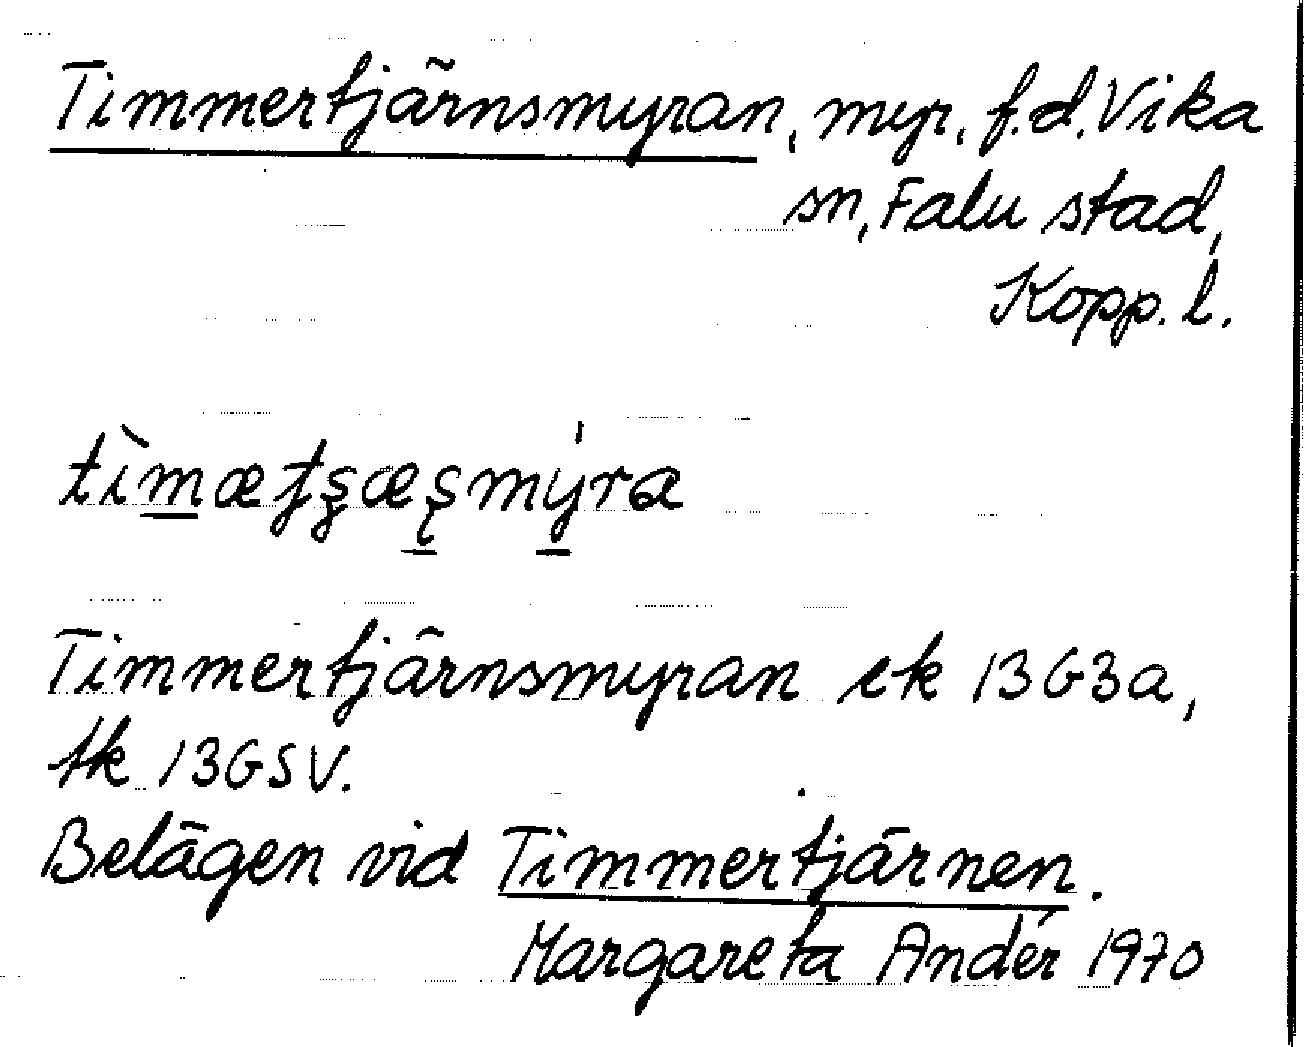 Timmertjärnsmyran, myr, f.d. Vika
sn, Falu stad,
Kopp. l.
Timmertjärnsmyran ek 13G3a,
tk 13GSV.
Belägen vid Timmertjärnen.
Margareta Andér 1970